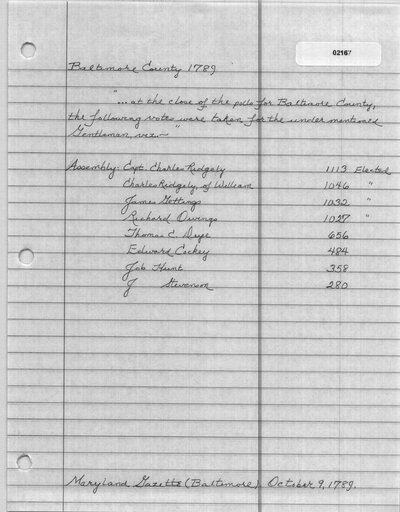 02167
Baltimore County 1789
"... at the close of the polls for Baltimore County,
the following votes were taken for the under mentioned
Gentleman, viz.—"
Assembly: Capt. Charles Ridgely 1113 Elected
Charles Ridgely, of William 1046 "
James Gittings 1032 "
Richard Owings 1027 "
Thomas C. Deye 656
Edward Cockey 484
Job Hunt 358
J Stevenson 280
Maryland Gazette (Baltimore). October 9, 1789.